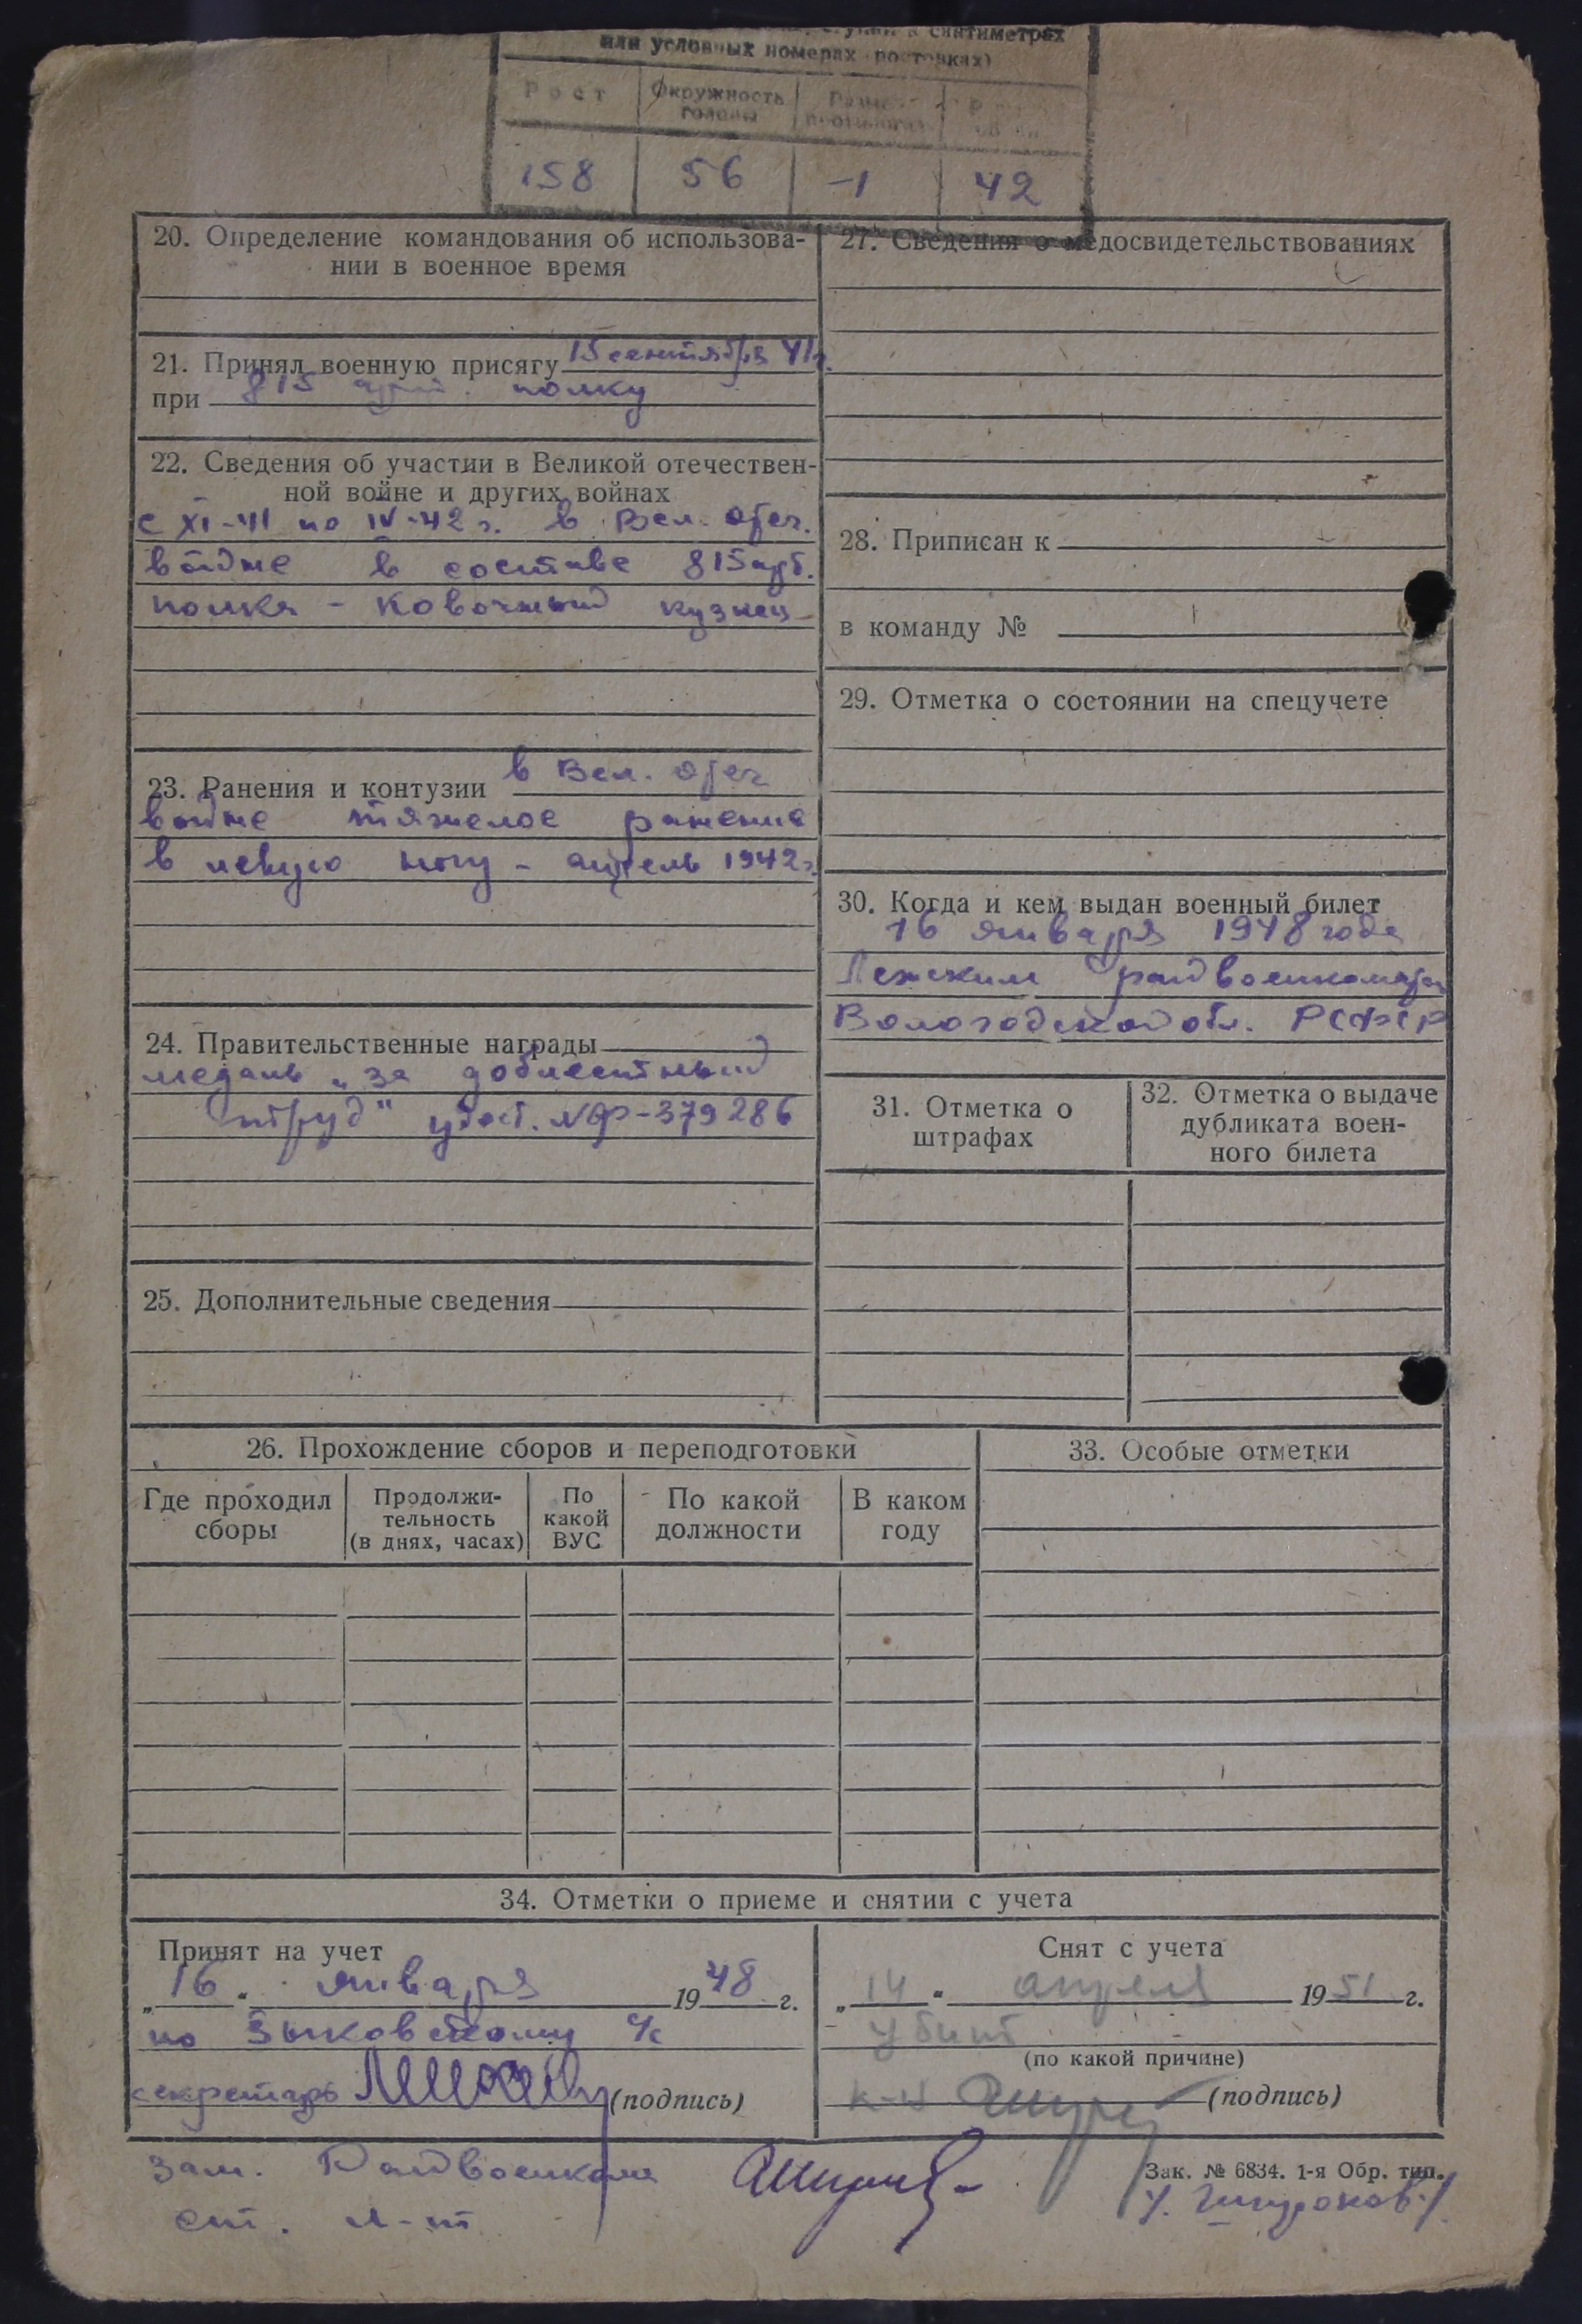 в сантиметрах
или условных номерах ростовках)
Рост Окружность головы
158 56 -1 42
20. Определение командования об использова-
нии в военное время
21. Принял военную присягу 15 сентября 41г.
при 815 арт. полку
22. Сведения об участии в Великой отечествен-
ной войне и других войнах
с XI-41 по IV-42 г. в Вел. отеч.
войне в составе 815 арт.
полка - ковочный кузнец
23. Ранения и контузии в Вел. отеч
войне тяжелое ранение
в левую ногу - апрель 1942г.
24. Правительственные награды
медаль „за доблестный
труд" удост. №Ф-379286
25. Дополнительные сведения
27. Сведения о медосвидетельствованиях
28. Приписан к
в команду №
29. Отметка о состоянии на спецучете
30. Когда и кем выдан военный билет
16 января 1948 года
Лежским райвоенкомато
Вологодской обл. РСФСР
31. Отметка о
штрафах
32. Отметка о выдаче
дубликата воен-
ного билета
26. Прохождение сборов и переподготовки
Где проходил
сборы
Продолжи-
тельность
(в днях, часах)
По
какой
ВУС
По какой
должности
В каком
году
33. Особые отметки
34. Отметки о приеме и снятии с учета
Принят на учет
„16" января 1948 г.
по Зыковскому с/с
секретарь (подпись)
Снят с учета
„14" апреля 1951 г.
убыт
(по какой причине)
к-н (подпись)
зам. Райвоенкома
ст. л-т
Зак. № 6834. 1-я Обр. тип.